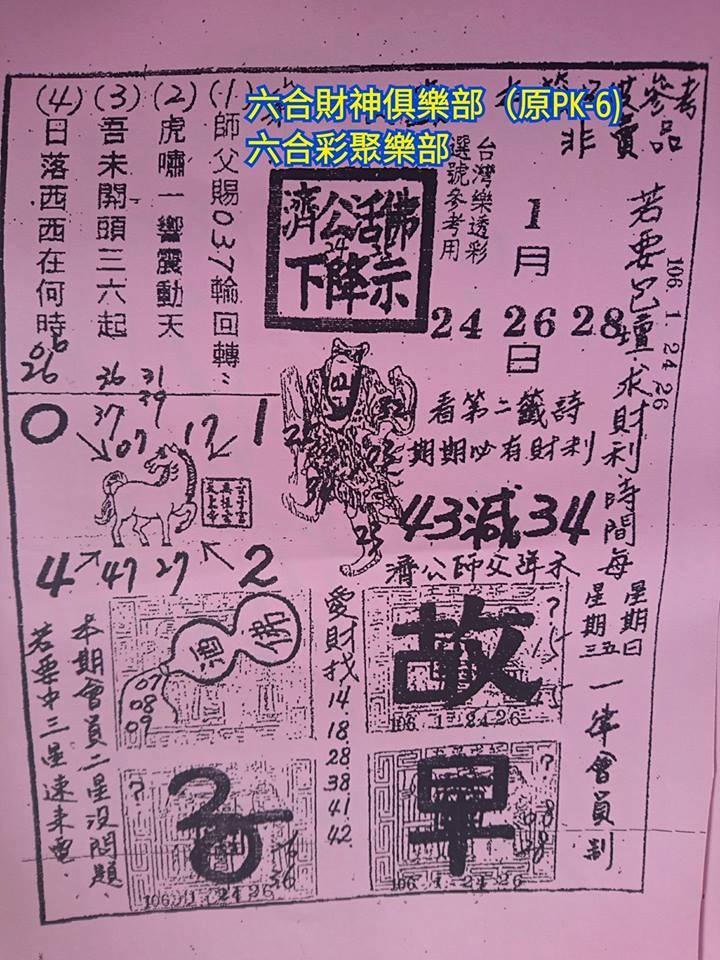 六合財神俱樂部（原PK-6)
六合彩聚樂部
參考品
非賣
若要巴壇求財利時間每星期日
星期三五
一律會員制
106 1. 24 26
1月
24 26 28
日
台灣樂透彩
選號參考用
濟公活佛
下降示
(1)師父賜037輪回轉
(2)虎嘯一響震動天
(3)吾未開頭三六起
(4)日落西西在何時
06
26
36 31
37 39
看第二籤詩
期期必有財利
43減34
濟公師父降示
0
1
07
17
4
47
27
2
32
25
愛財找
14
18
28
38
41
42
故
?
15
45
106. 1 24 26
早
?
08
28
106. 1 24 26
?
106. 1 24 26
佛
07
08
09
本期會員二星沒問題
若要中三星速來電